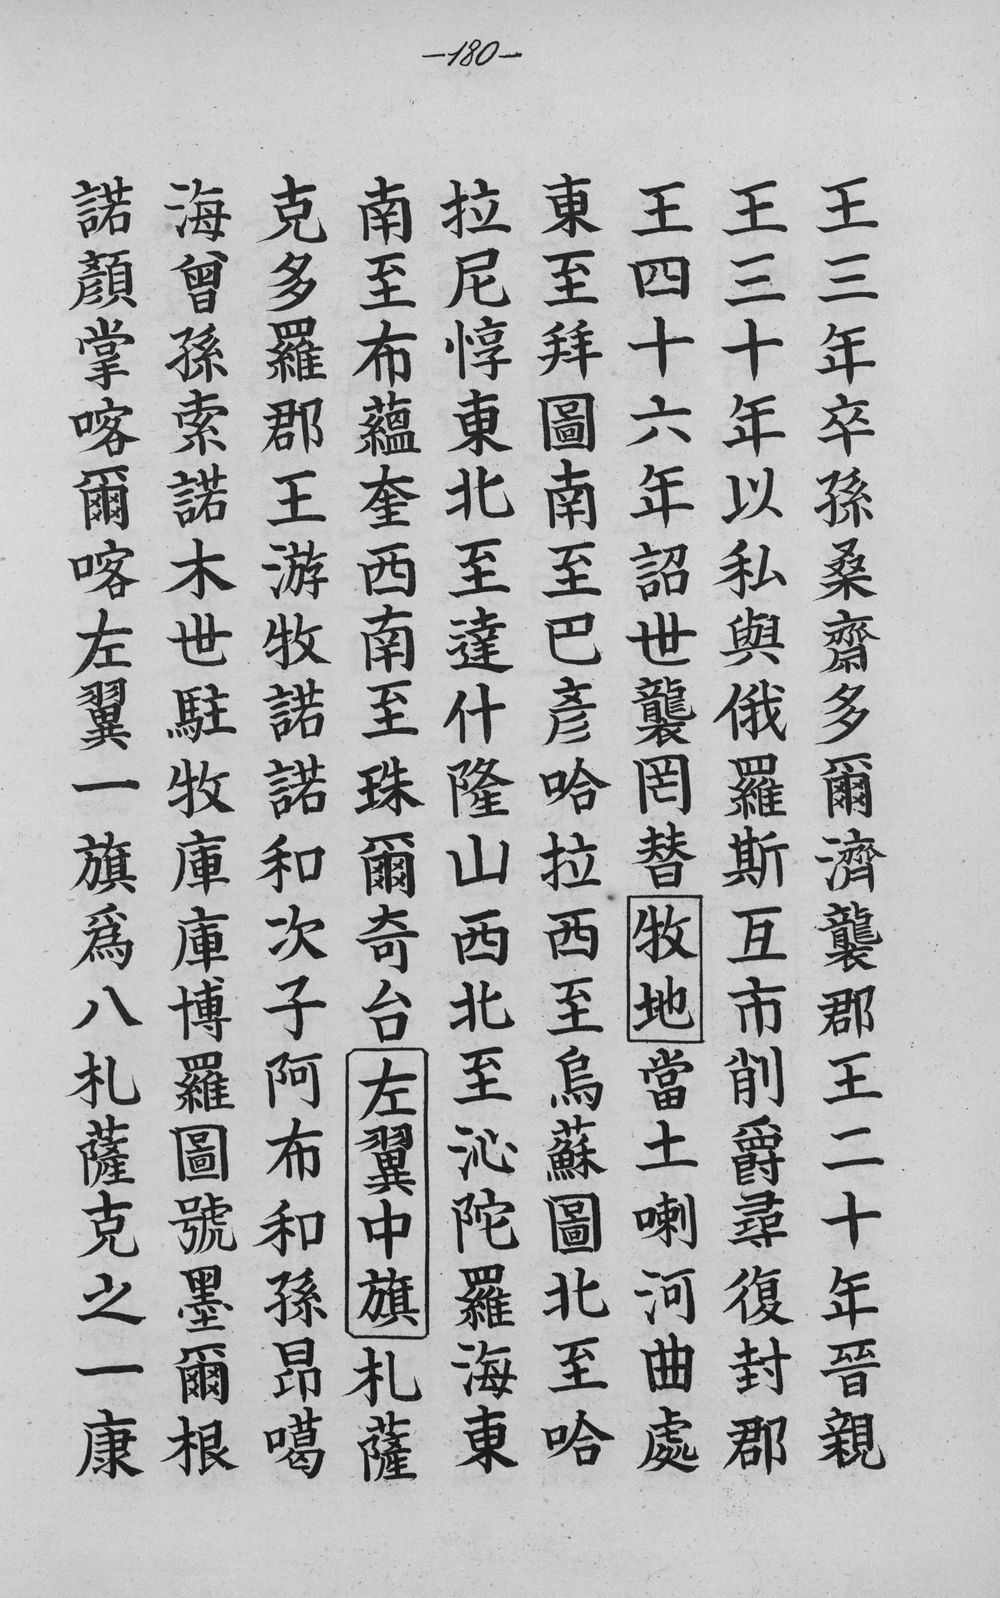 —180—
王三年卒孫桑齋多爾濟襲郡王二十年晉親
王三十年以私與俄羅斯互市削爵尋復封郡
王四十六年詔世襲罔替牧地當土喇河曲處
東至拜圖南至巴彥哈拉西至烏蘇圖北至哈
拉尼惇東北至達什隆山西北至沁陀羅海東
南至布蘊奎西南至珠爾奇台左翼中旗札薩
克多羅郡王游牧諾諾和次子阿布和孫昂噶
海曾孫索諾木世駐牧庫庫博羅圖號墨爾根
諾顏掌喀爾喀左翼一旗爲八札薩克之一康